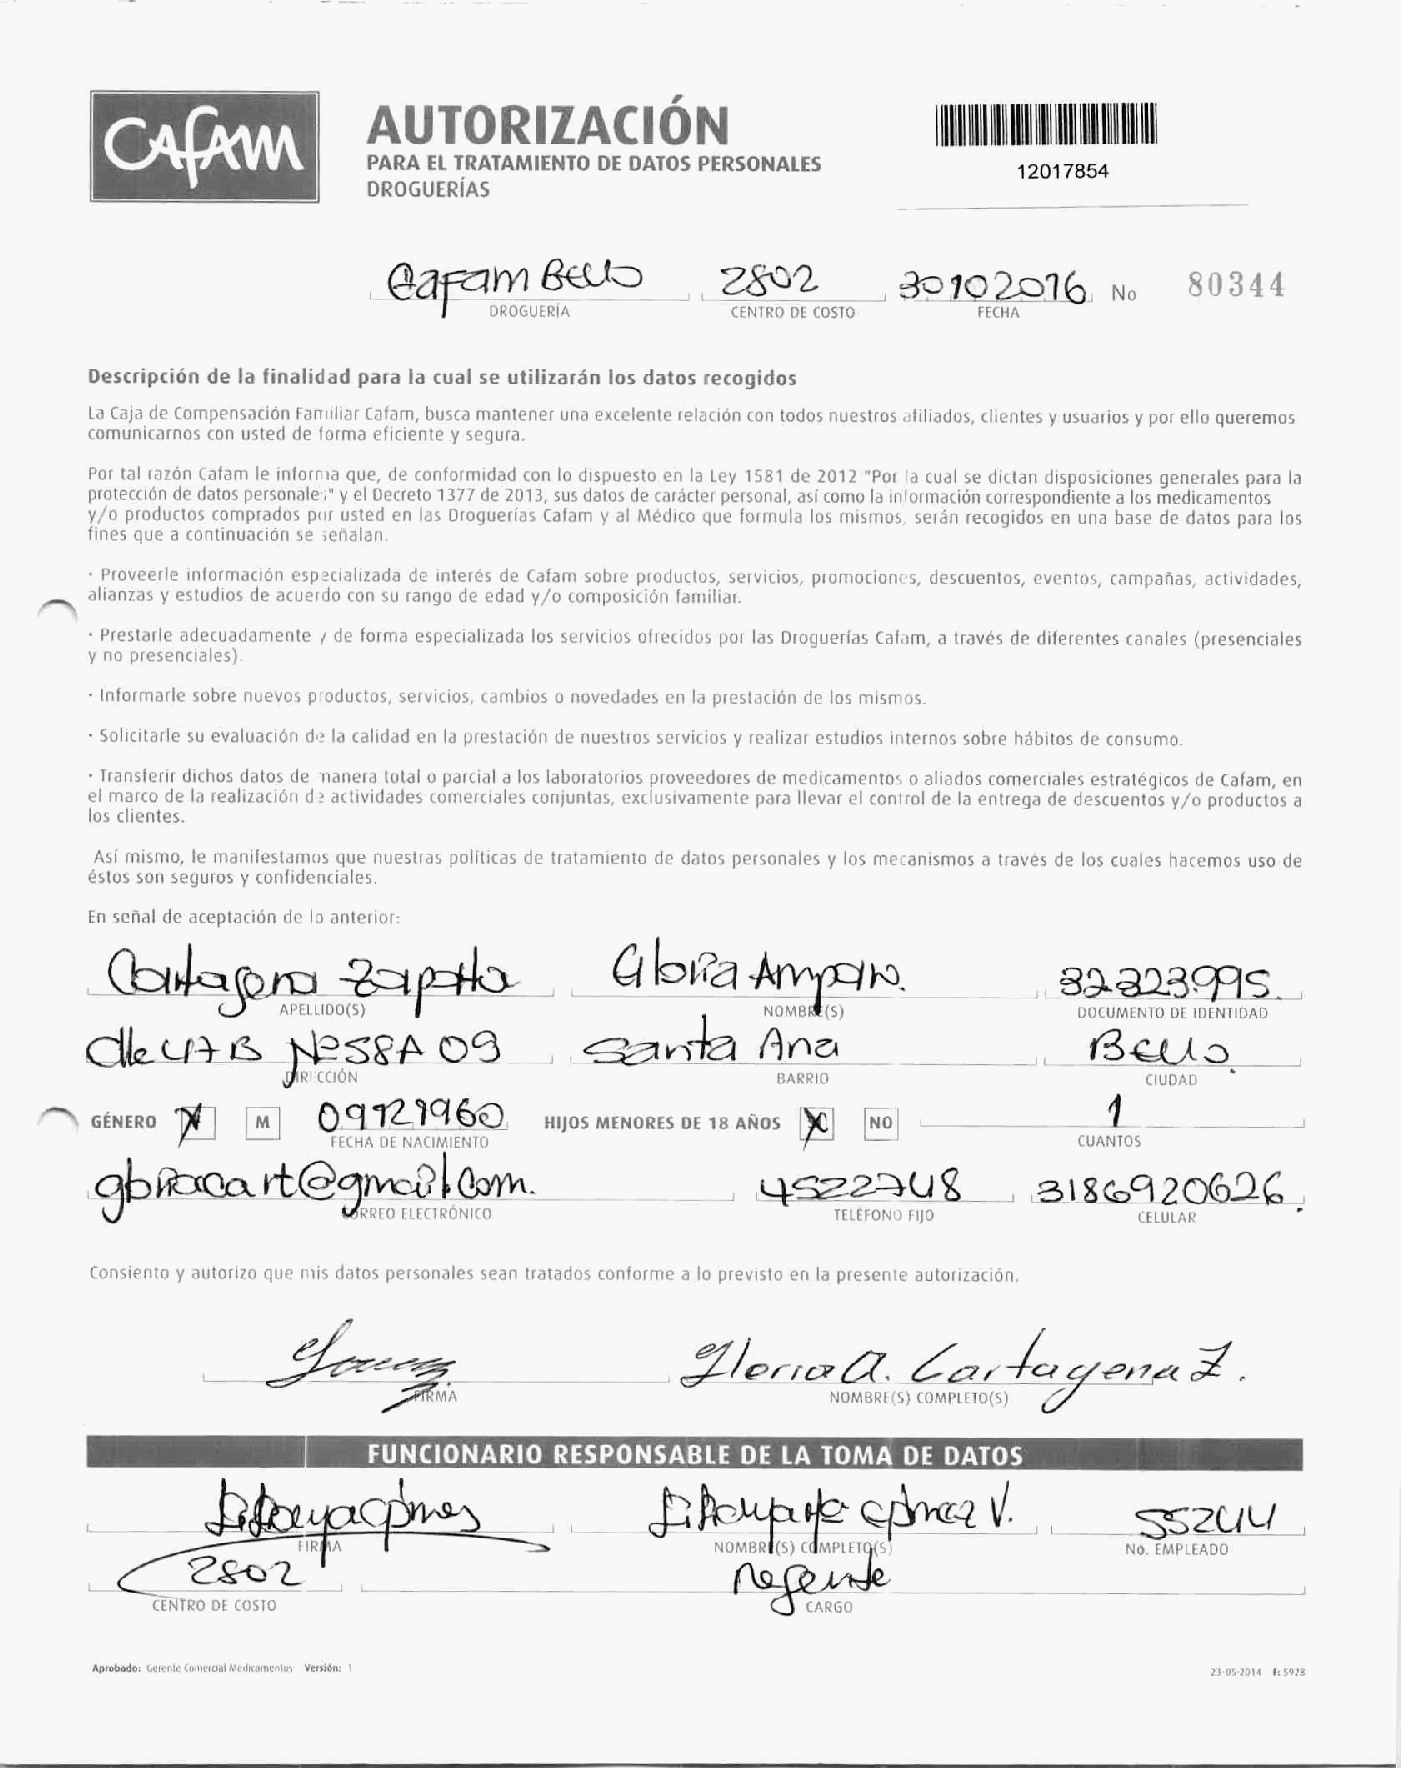 CAFAM
AUTORIZACIÓN
PARA EL TRATAMIENTO DE DATOS PERSONALES
DROGUERÍAS
12017854
Cafam Bello 2802 30102016 No 80344
DROGUERÍA CENTRO DE COSTO FECHA
Descripción de la finalidad para la cual se utilizarán los datos recogidos
La Caja de Compensación Familiar Cafam, busca mantener una excelente relación con todos nuestros afiliados, clientes y usuarios y por ello queremos
comunicarnos con usted de forma eficiente y segura.
Por tal razón Cafam le informa que, de conformidad con lo dispuesto en la Ley 1581 de 2012 "Por la cual se dictan disposiciones generales para la
protección de datos personales" y el Decreto 1377 de 2013, sus datos de carácter personal, así como la información correspondiente a los medicamentos
y/o productos comprados por usted en las Droguerías Cafam y al Médico que formula los mismos, serán recogidos en una base de datos para los
fines que a continuación se señalan.
· Proveerle información especializada de interés de Cafam sobre productos, servicios, promociones, descuentos, eventos, campañas, actividades,
alianzas y estudios de acuerdo con su rango de edad y/o composición familiar.
· Prestarle adecuadamente y de forma especializada los servicios ofrecidos por las Droguerías Cafam, a través de diferentes canales (presenciales
y no presenciales).
· Informarle sobre nuevos productos, servicios, cambios o novedades en la prestación de los mismos.
· Solicitarle su evaluación de la calidad en la prestación de nuestros servicios y realizar estudios internos sobre hábitos de consumo.
· Transferir dichos datos de manera total o parcial a los laboratorios proveedores de medicamentos o aliados comerciales estratégicos de Cafam, en
el marco de la realización de actividades comerciales conjuntas, exclusivamente para llevar el control de la entrega de descuentos y/o productos a
los clientes.
Así mismo, le manifestamos que nuestras políticas de tratamiento de datos personales y los mecanismos a través de los cuales hacemos uso de
éstos son seguros y confidenciales.
En señal de aceptación de lo anterior:
Cartagena Zapata Gloria Amparo. 32323995.
APELLIDO(S) NOMBRE(S) DOCUMENTO DE IDENTIDAD
Clle 47 B Nº 58A 09 Santa Ana Bello.
DIRECCIÓN BARRIO CIUDAD
GÉNERO X M 09121960 HIJOS MENORES DE 18 AÑOS X NO 1
FECHA DE NACIMIENTO CUANTOS
gloriacart@gmail.com. 4522748 3186920626.
CORREO ELECTRÓNICO TELÉFONO FIJO CELULAR
Consiento y autorizo que mis datos personales sean tratados conforme a lo previsto en la presente autorización.
Gloria A. Cartagena Z.
FIRMA NOMBRE(S) COMPLETO(S)
FUNCIONARIO RESPONSABLE DE LA TOMA DE DATOS
55244
FIRMA NOMBRE(S) COMPLETO(S) No. EMPLEADO
2802 Regente
CENTRO DE COSTO CARGO
Aprobado: Gerente Comercial Medicamentos Versión: 1 23-05-2014 F: 5928